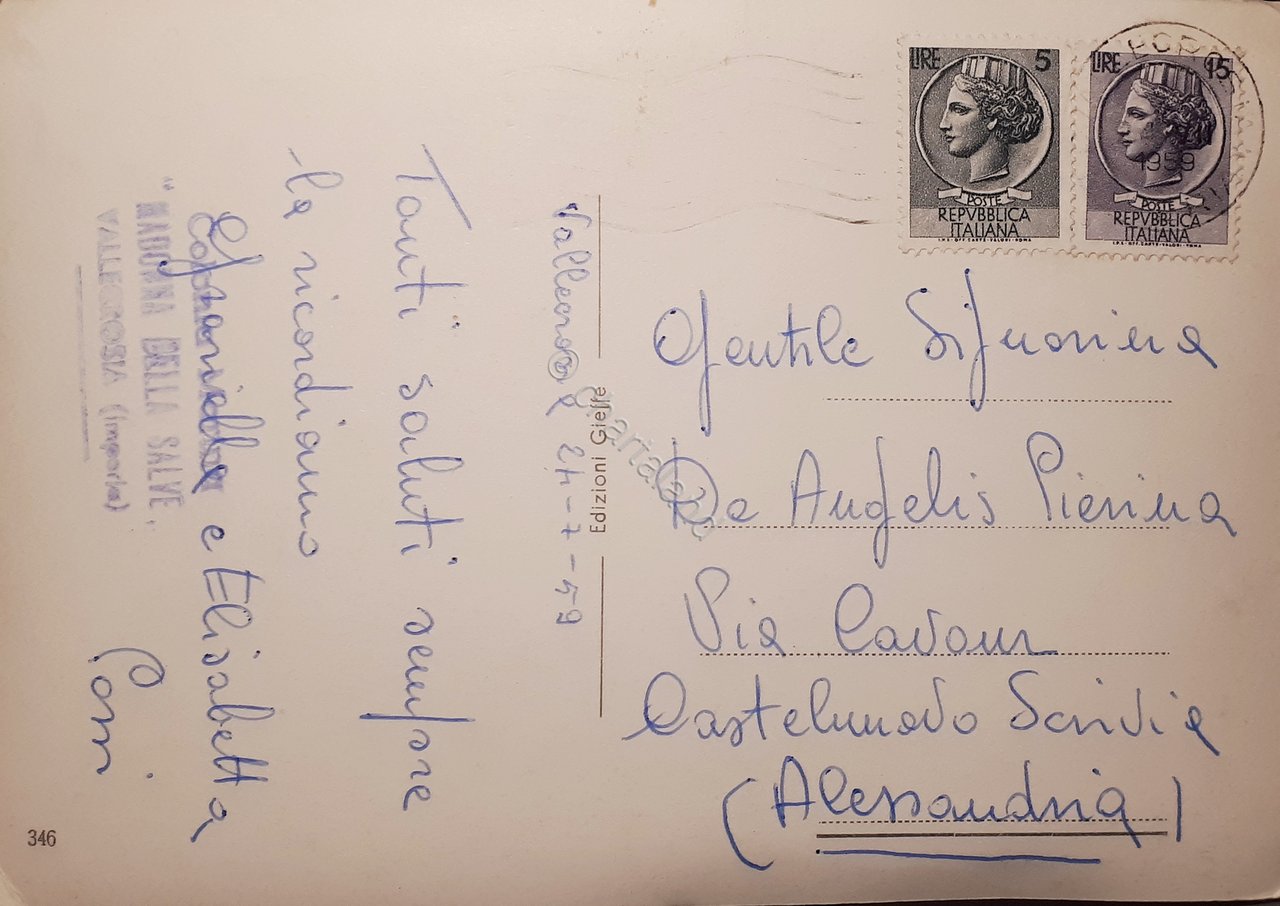 Vallecrosia 24-7-59
Tanti saluti sempre
la ricordiamo
Graziella e Elisabetta
"MADONNA DELLA SALVE"
VALLECROSIA (Imperia)
346
Edizioni Gieffe
LIRE 5
POSTE
REPVBBLICA
ITALIANA
I.P.S. OFF. CARTE-VALORI-ROMA
LIRE 15
POSTE
REPVBBLICA
ITALIANA
I.P.S. OFF. CARTE-VALORI-ROMA
1959
Gentile Signorina
De Angelis Pierina
Via Cavour
Castelnuovo Scrivia
(Alessandria)